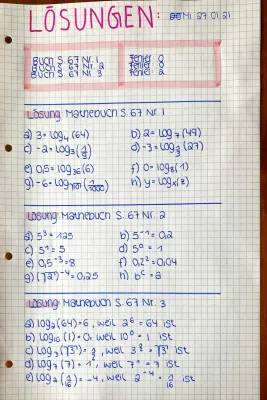 LÖSUNGEN: Mi 27.01.21
Buch S. 67 Nr. 1 Fehler: 0
Buch S. 67 Nr. 2 Fehler: 0
Buch S. 67 Nr. 3 Fehler: 2
Lösung Mathebuch S. 67 Nr. 1
a) 3 = log₄(64) b) 2 = log₇(49)
c) -2 = log₃(1/9) d) -3 = log (27)
e) 0,5 = log₃₆(6) f) 0 = log₈(1)
g) -6 = log (1/1000) h) y = logₓ(z)
Lösung Mathebuch S. 67 Nr. 2
a) 5³ = 125 b) 5⁻¹ = 0,2
c) 5¹ = 5 d) 5⁰ = 1
e) 0,5⁻³ = 8 f) 0,2² = 0,04
g) (√2)⁻⁴ = 0,25 h) bᶜ = a
Lösung Mathebuch S. 67 Nr. 3
a) log₂(64) = 6, weil 2⁶ = 64 ist
b) log₁₀(1) = 0, weil 10⁰ = 1 ist
c) log₃(√3) = , weil 3 = √3 ist
d) log₇(7) = 1, weil 7¹ = 7 ist
e) log₂(1/16) = -4, weil 2⁻⁴ = 1/16 ist